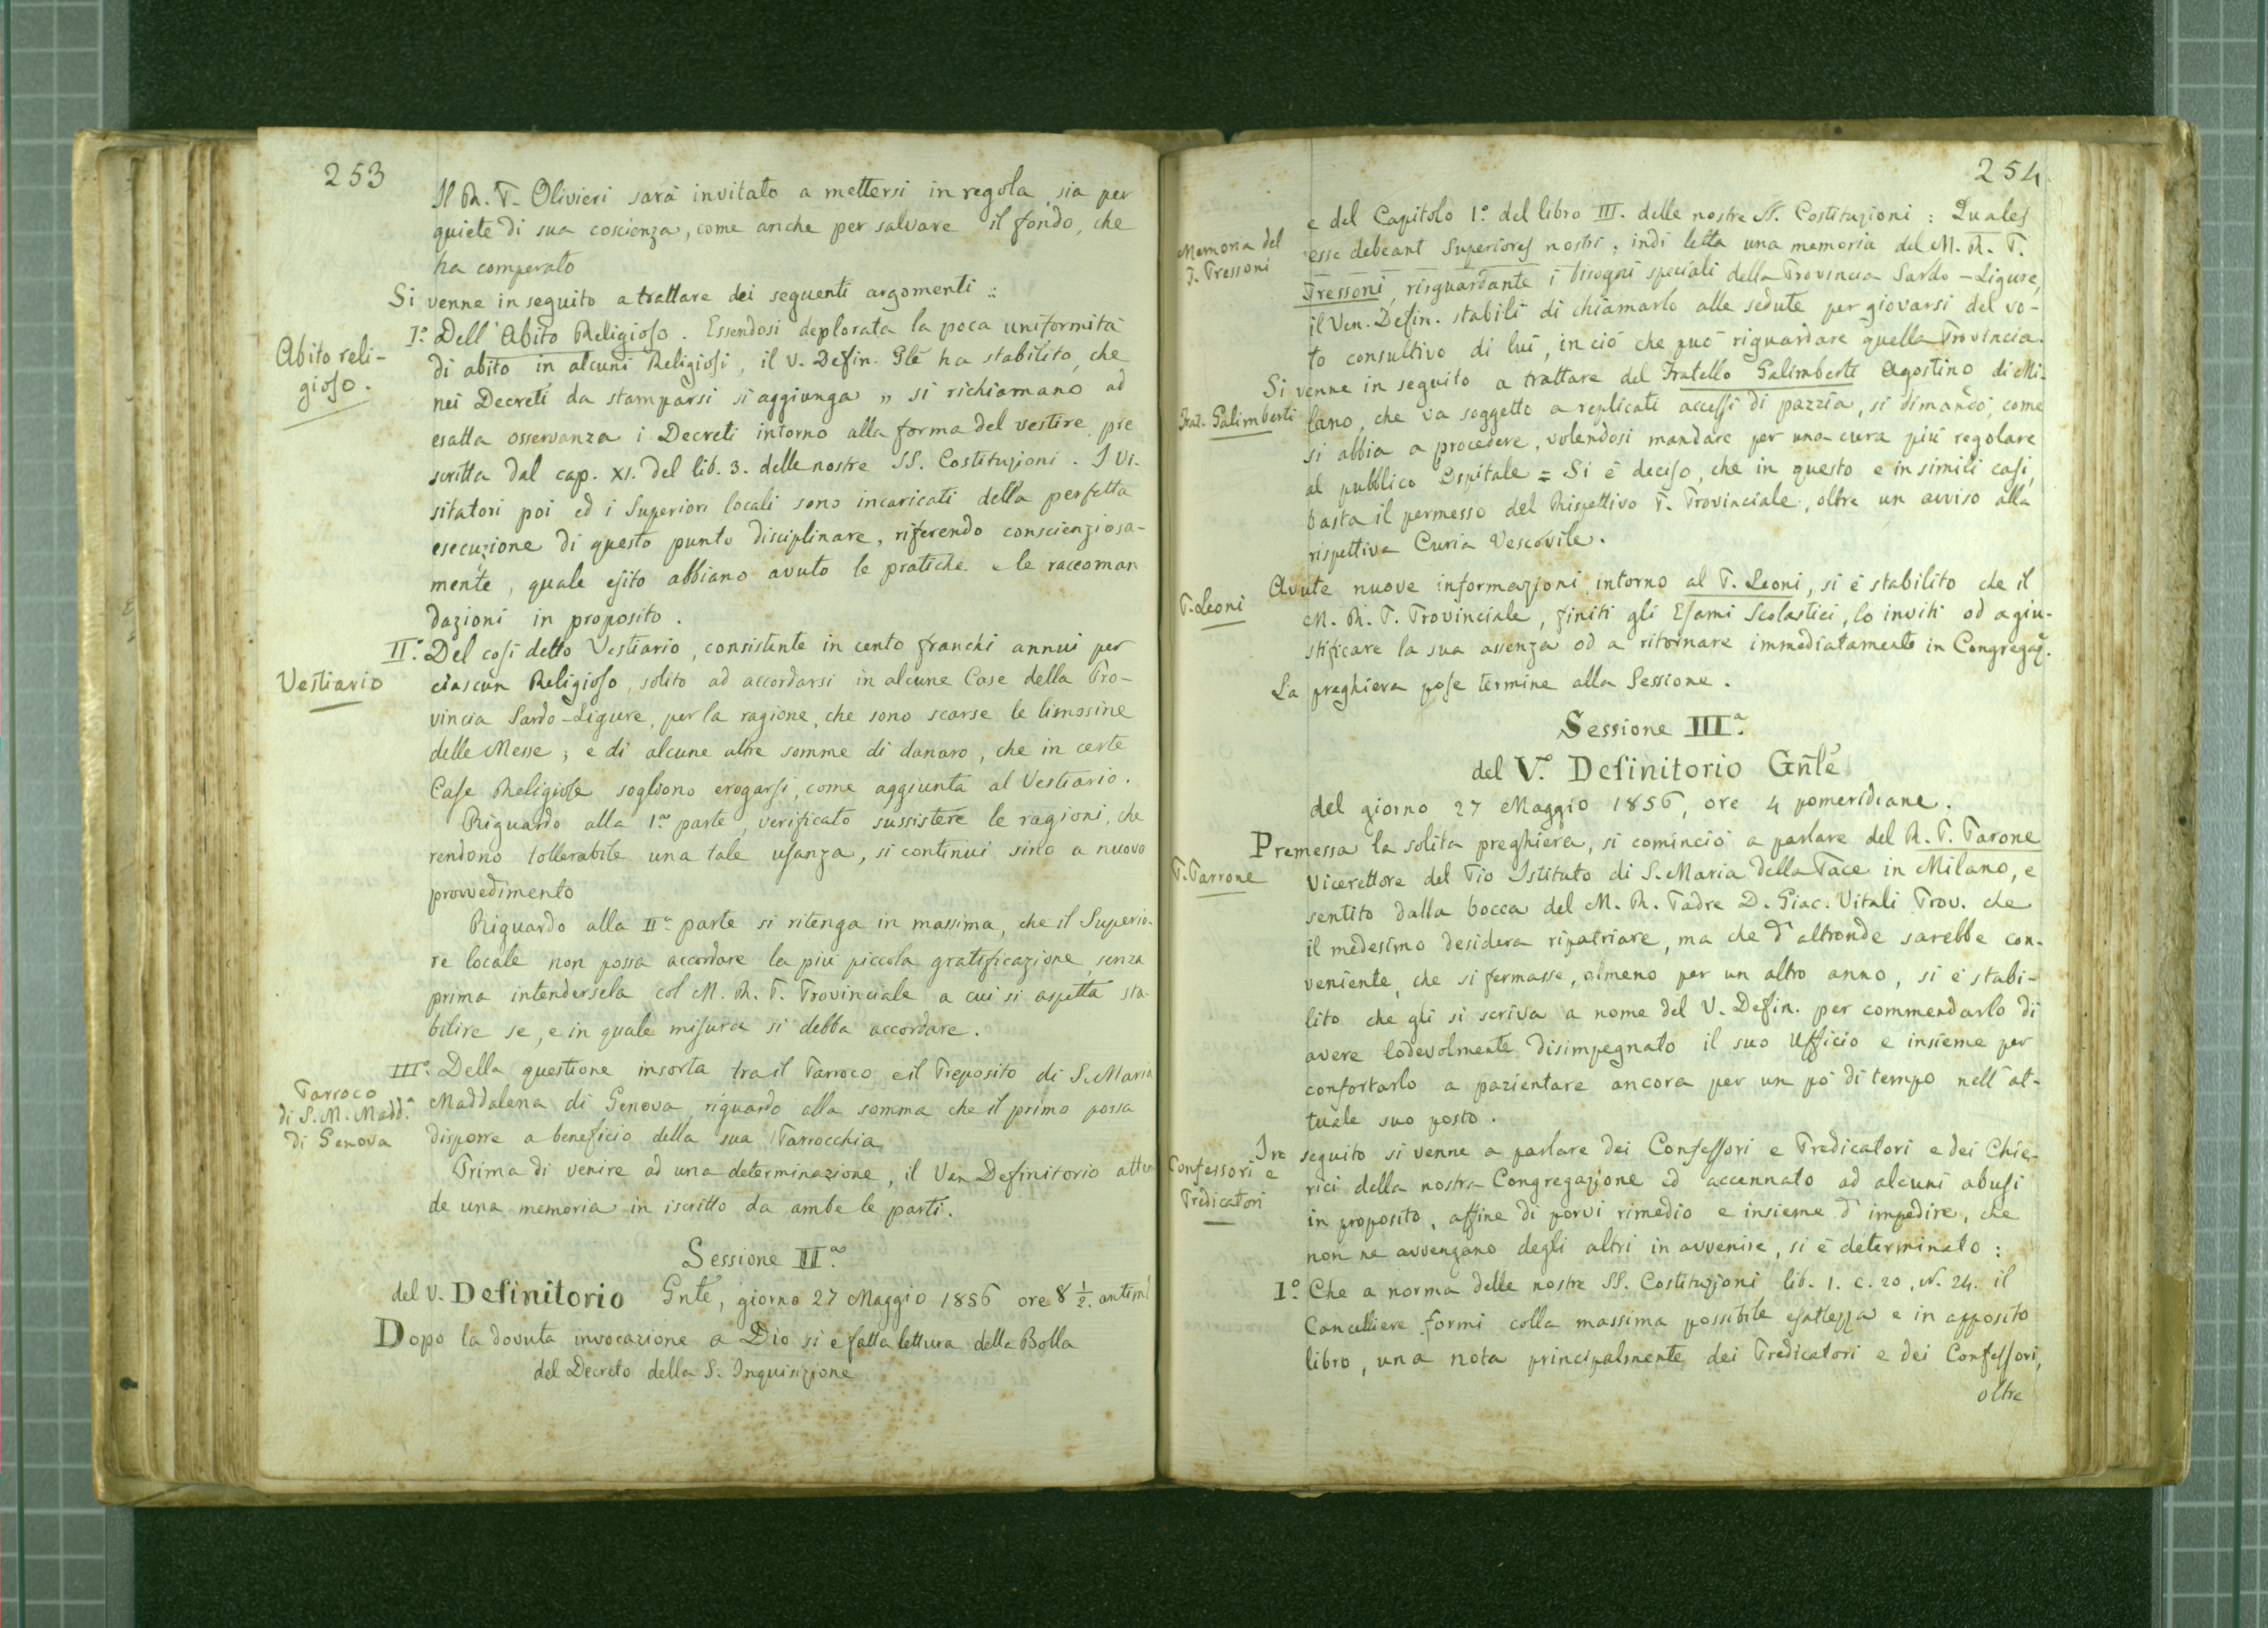 253
Il R. P. Olivieri sarà invitato a mettersi in regola, sia per
quiete di sua coscienza, come anche per salvare il fondo, che
ha comperato
Si venne in seguito a trattare dei seguenti argomenti :
Abito reli-
gioso.
I.° Dell'Abito Religioso. Essendosi deplorata la poca uniformità
di abito in alcuni Religiosi, il V. Defin. Glē ha stabilito, che
nei Decreti da stamparsi si aggiunga „ si richiamano ad
esatta osservanza i Decreti intorno alla forma del vestire pre
scritta dal cap. XI. del lib. 3. delle nostre SS. Costituzioni. I Vi-
sitatori poi ed i Superiori locali sono incaricati della perfetta
esecuzione di questo punto disciplinare, riferendo conscienziosa-
mente, quale esito abbiano avuto le pratiche e le raccoman
dazioni in proposito.
Vestiario
II.° Del così detto Vestiario, consistente in cento franchi annui per
ciascun Religioso, solito ad accordarsi in alcune Case della Pro-
vincia Sardo-Ligure, per la ragione, che sono scarse le limosine
delle Messe; e di alcune altre somme di danaro, che in certe
Case Religiose sogliono erogarsi, come aggiunta al Vestiario.
Riguardo alla 1.a parte, verificato sussistere le ragioni, che
rendono tollerabile una tale usanza, si continui sino a nuovo
provvedimento
Riguardo alla II.a parte si ritenga in massima, che il Superio-
re locale non possa accordare la più piccola gratificazione senza
prima intendersela col M. R. P. Provinciale a cui si aspetta sta-
bilire se, e in quale misura si debba accordare.
Parroco
di S. M. Madd.a
di Genova
III.° Della questione insorta tra il Parroco e il Preposito di S. Maria
Maddalena di Genova, riguardo alla somma che il primo possa
disporre a beneficio della sua Parrocchia
Prima di venire ad una determinazione, il Ven Definitorio atten
de una memoria in iscritto da ambe le parti.
Sessione II.a
del V. Definitorio Gnlē, giorno 27 Maggio 1856 ore 8 1/2. antim
Dopo la dovuta invocazione a Dio si è fatta lettura della Bolla
del Decreto della S. Inquisizione
254
e del Capitolo 1.° del libro III. delle nostre SS. Costituzioni : Quales
Memoria del
P. Pressoni
esse debeant Superiores nostri; indi letta una memoria del M. R. P.
Pressoni, risguardante i bisogni speciali della Provincia Sardo-Ligure,
il Ven. Defin. stabilì di chiamarlo alle sedute per giovarsi del vo-
to consultivo di lui, in ciò che può riguardare quella Provincia.
Frat. Galimberti
Si venne in seguito a trattare del Fratello Galimberti Agostino di Mi-
lano, che va soggetto a replicati accessi di pazzia, si dimandò, come
si abbia a procedere, volendosi mandare per una cura più regolare
al pubblico Ospitale = Si è deciso, che in questo e in simili casi,
basta il permesso del Rispettivo P. Provinciale, oltre un avviso alla
rispettiva Curia Vescovile.
P. Leoni
Avute nuove informazioni intorno al P. Leoni, si è stabilito che il
M. R. P. Provinciale, finiti gli Esami Scolastici, lo inviti od a giu-
stificare la sua assenza od a ritornare immediatamente in Congregaz.
La preghiera pose termine alla Sessione.
Sessione III.a
del V.° Definitorio Gnlē
del giorno 27 Maggio 1856, ore 4 pomeridiane.
P. Parrone
Premessa la solita preghiera, si cominciò a parlare del R. P. Parone
Vicerettore del Pio Istituto di S. Maria della Pace in Milano, e
sentito dalla bocca del M. R. Padre D. Giac. Vitali Prov. che
il medesimo desidera ripatriare, ma che d'altronde sarebbe con-
veniente, che si fermasse, almeno per un altro anno, si è stabi-
lito che gli si scriva a nome del V. Defin. per commendarlo di
avere lodevolmente disimpegnato il suo Ufficio e insieme per
confortarlo a pazientare ancora per un pò di tempo nell'at-
tuale suo posto.
Confessori e
Predicatori
In seguito si venne a parlare dei Confessori e Predicatori e dei Chie-
rici della nostra Congregazione ed accennato ad alcuni abusi
in proposito, affine di porvi rimedio e insieme d'impedire, che
non ne avvengano degli altri in avvenire, si è determinato :
I.° Che a norma delle nostre SS. Costituzioni lib. 1. c. 20, N. 24. il
Cancelliere formi colla massima possibile esattezza e in apposito
libro, una nota principalmente dei Predicatori e dei Confessori,
oltre